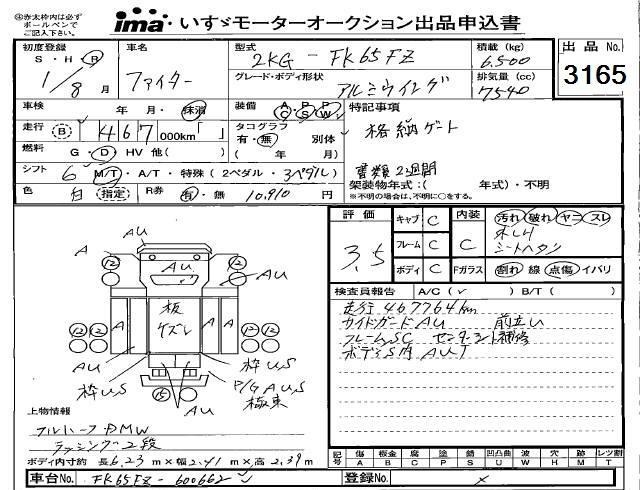 ④赤太枠内は必ず
ボールペンで
ご記入下さい。
ima いすゞモーターオークション出品申込書
初度登録
S・H・R
1/8月
車名
ファイター
型式
2KG-FK65FZ
グレード・ボディ形状
アルミウイング
積載(kg)
6,500
排気量(cc)
7540
出品No.
3165
車検 年・月・抹消
装備 A P P
C S W
走行 B 467 000km「 」
タコグラフ 別体
有・無( 年 月)
燃料 G・D・HV 他( )
シフト 6 M/T・A/T・特殊(2ペダル・3ペダル)
色 白 (指定) R券 有・無 10,910 円
特記事項
格納ゲート
書類2週間
架装物年式:( 年式)・不明
※不明の場合は、不明に○をする。
評価
3.5
キャブ C
フレーム C
ボディ C
内装 C
Fガラス S
汚れ 破れ ヤニ スレ
シートヘタリ
割れ 線 点傷 イバリ
検査員報告 A/C(✓ ) B/T( )
走行467764km
サイドガードAU 前立U
フレームSC センターメント補修
ボデーS内 AUT
A
12
12
AU
AU
AU
12
12
板
ケズレ
A
A
A
AU
枠U,S
AU
15
AU
枠U,S
P/G A,U,S
極東
上物情報
フルハーフPMW
ラッシング2段
ボディ内寸約 長6.23m×幅2.41m×高2.39m
記号 傷 板金 腐 塗 錆 凹凸曲 波 穴 跡 レツ割
A B C P S U W H M T
車台No. FK65FZ-600662
登録番号 ×